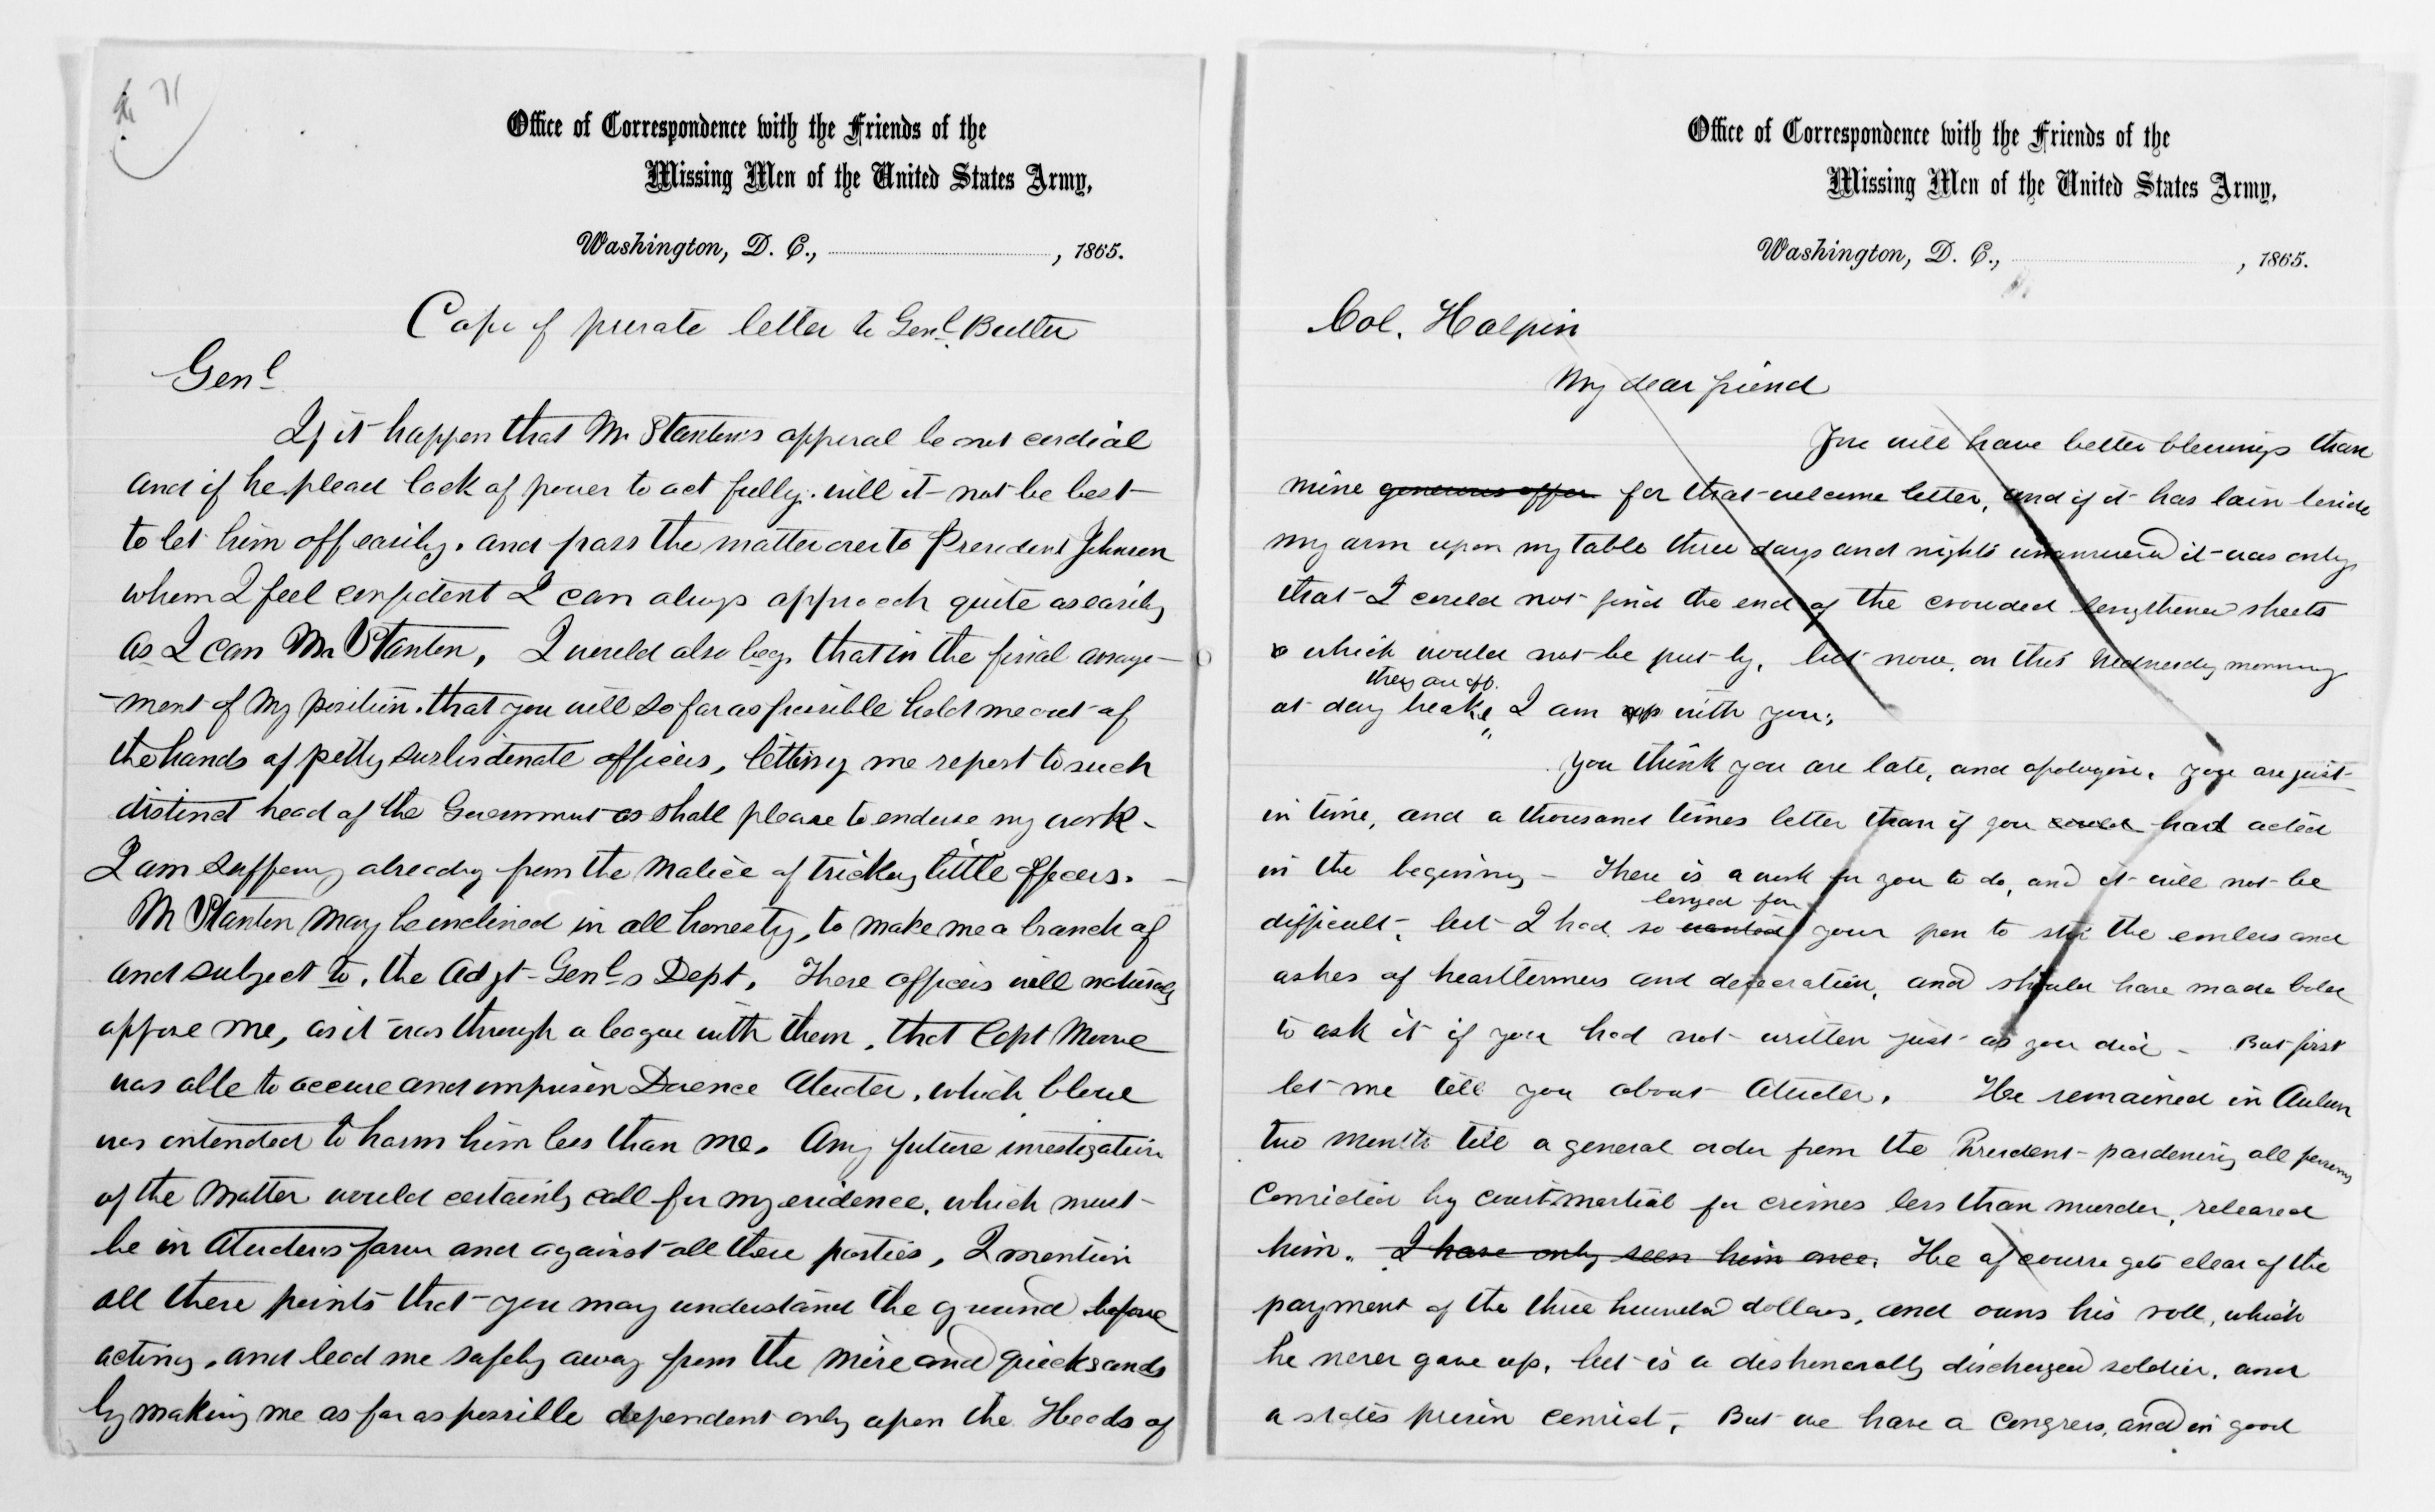 71
Office of Correspondence with the Friends of the
Missing Men of the United States Army,
Washington, D. C., , 1865.
Copy of private letter to Genl. Butler
Genl
If it happen that Mr Stanton's approval be not cordial
and if he plead lack of power to act fully. will it not be best
to let him off easily. and pass the matter over to President Johnson
whom I feel confident I can always approach quite as easily
as I can Mr Stanton, I would also beg, that in the final arrange-
-ment of my position. that you will so far as possible hold me out of
the hands of petty surbordinate officers, letting me report to such
distinct head of the Government as shall please to endorse my work -
I am suffering already from the malice of tricky little officers. -
Mr Stanton may be inclined in all honesty, to make me a branch of
and subject to, the Adjt-Genls Dept. These officers will naturally
oppose me, as it was through a league with them, that Capt Moore
was able to accuse and imprison Dorence Atwater, which blow
was intended to harm him less than me. Any future investigation
of the matter would certainly call for my evidence, which must
be in Atwaters favor and against all these parties, I mention
all these points that you may understand the ground before
acting, and lead me safely away from the mire and quicksands
by making me as far as possible dependent only upon the Heads of
Office of Correspondence with the Friends of the
Missing Men of the United States Army,
Washington, D. C., , 1865.
Col. Halpin
My dear friend
You will have better blessings than
mine generous offer for that welcome letter, and if it has lain beside
my arm upon my table three days and nights unanswered it was only
that I could not find the end of the crowded lengthened sheets
which would not be put by, but now, on this Wednesday morning
they are off.
at day break, I am up with you;
You think you are late, and apologise. you are just
in time, and a thousand times better than if you could had acted
in the beginning - There is a work for you to do, and it will not be
longed for
difficult, but I had so wanted your pen to stir the embers and
ashes of hearts and desecration, and should have made bold
to ask it if you had not written just as you did - But first
let me tell you about Atwater. He remained in Auburn
two months till a general order from the President pardoning all persons
convicted by court martial for crimes less than murder, released
him. I have only seen him once. He of course gets clear of the
payment of the three hundred dollars, and owns his roll, which
he never gave up, but is a dishonorably discharged soldier, and
a states prison convict, But we have a Congress, and in good